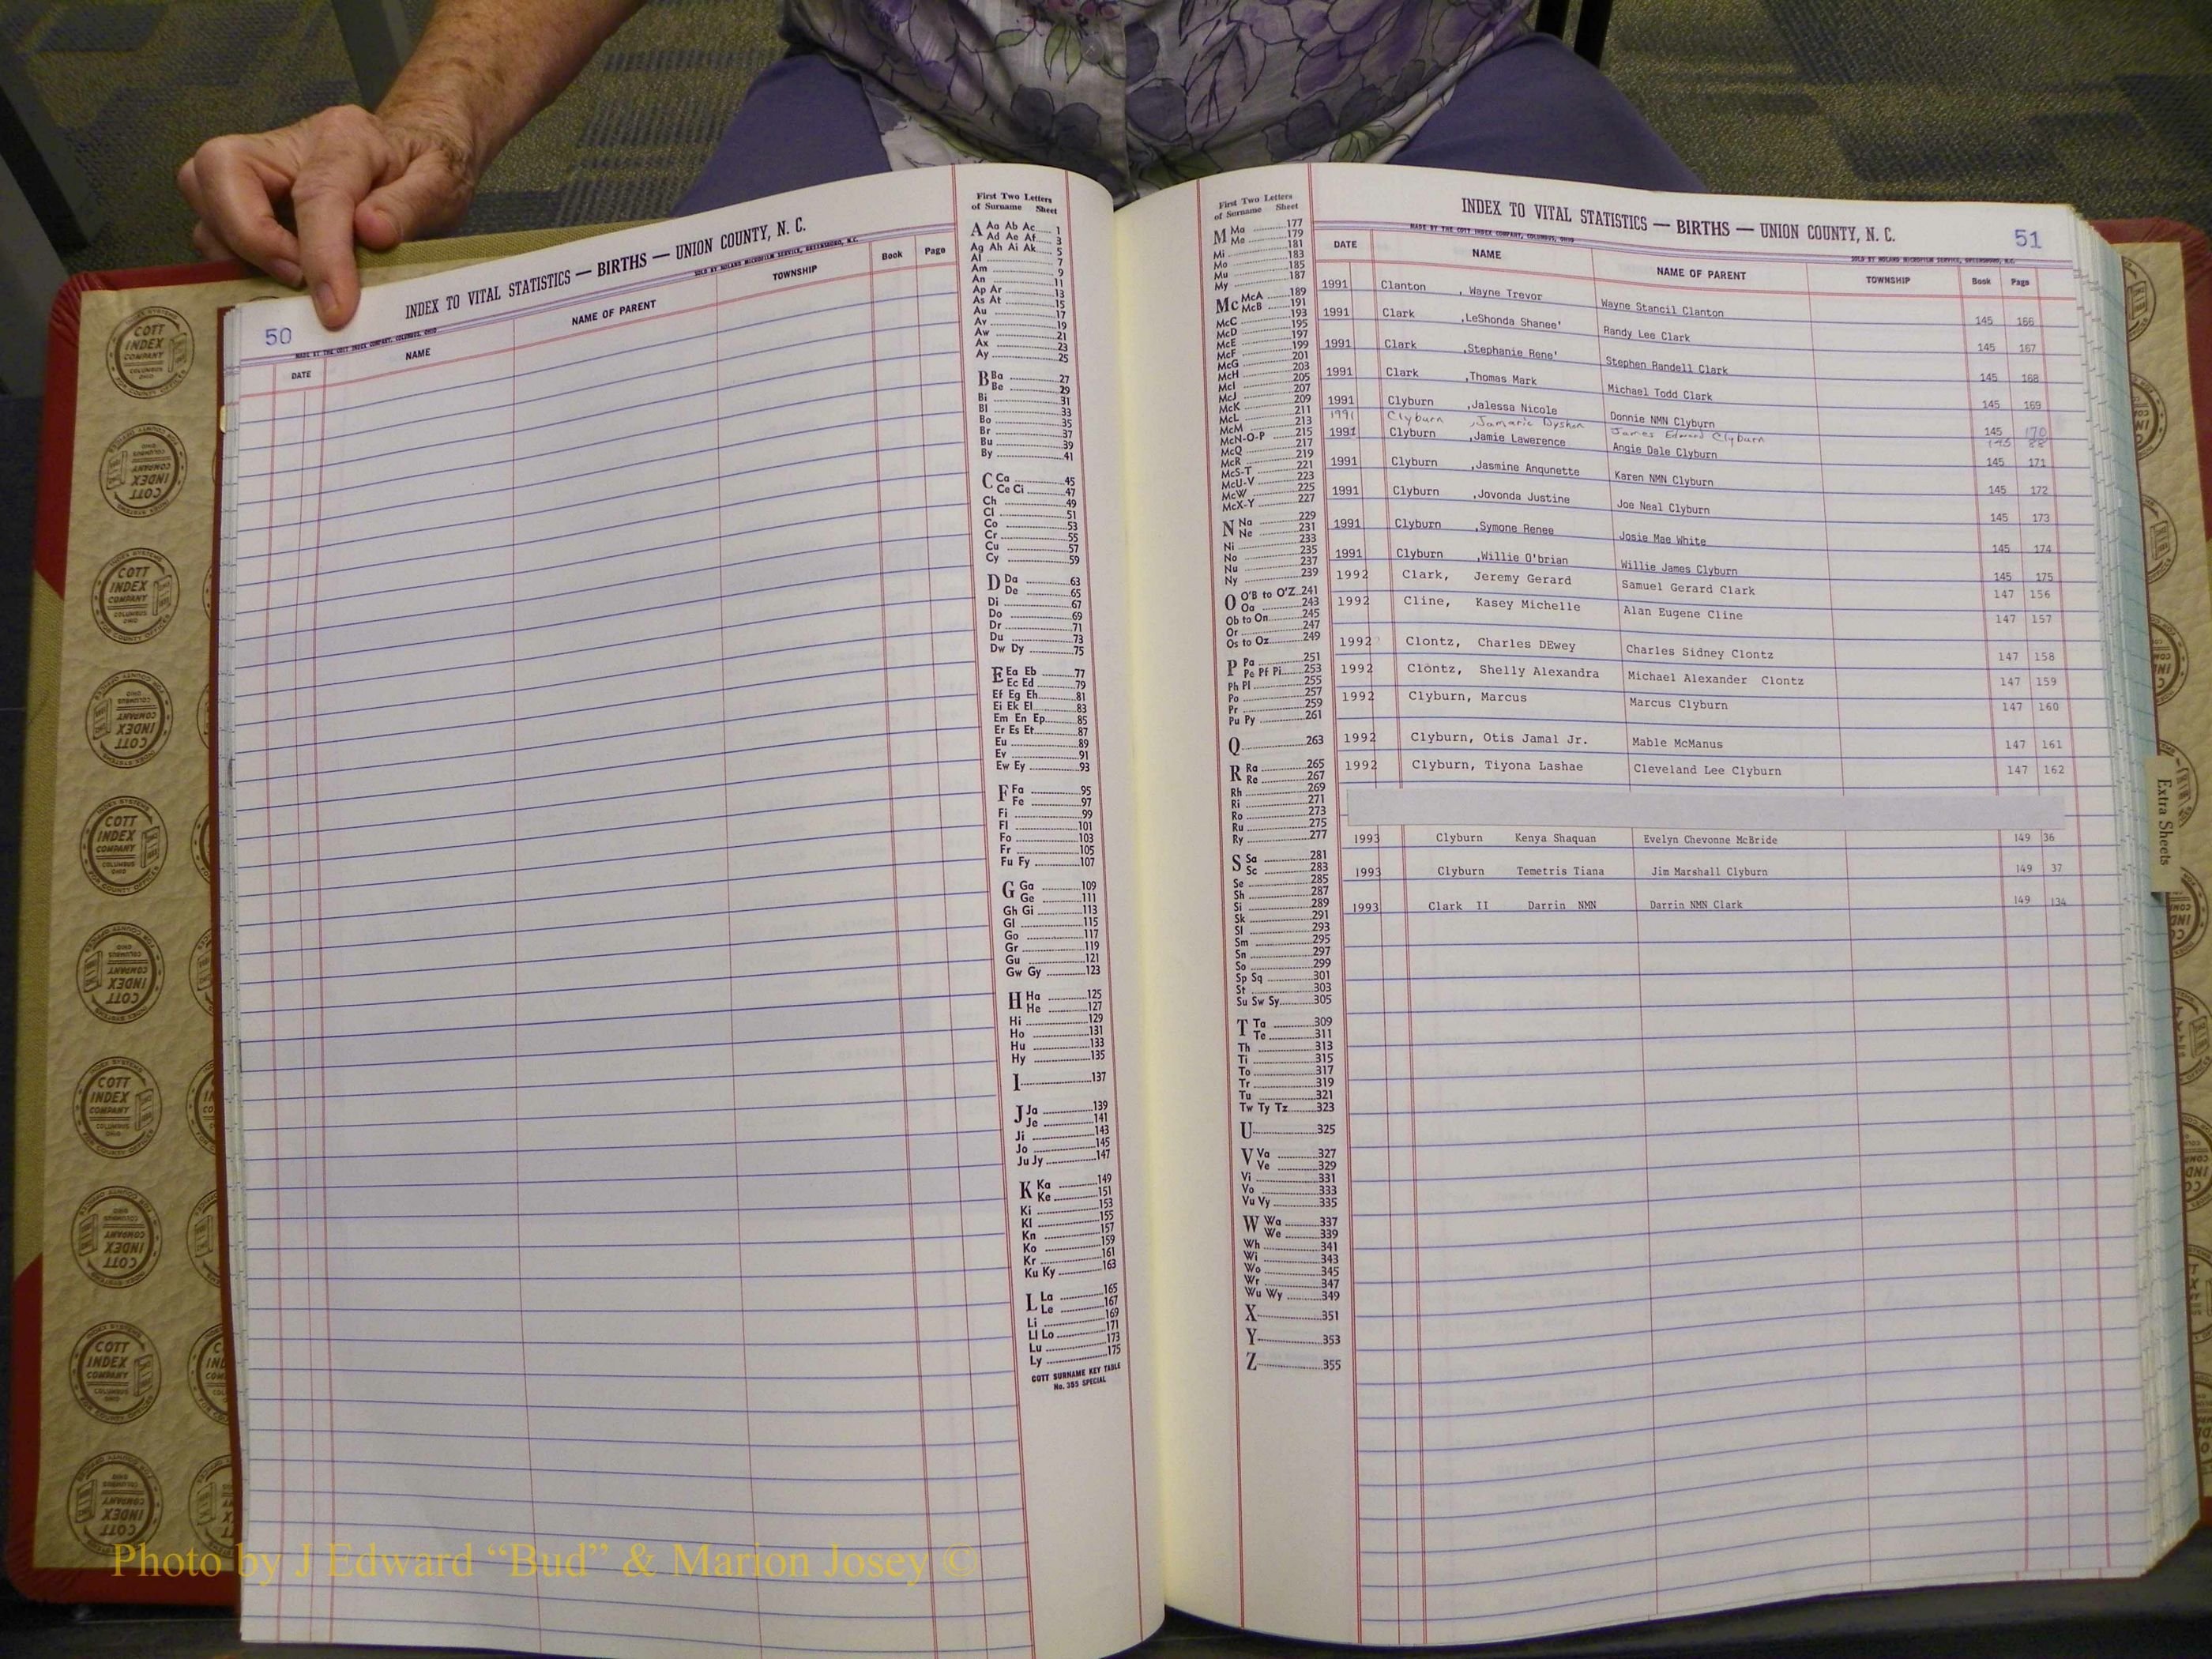 50
INDEX TO VITAL STATISTICS — BIRTHS — UNION COUNTY, N. C.
MADE BY THE COTT INDEX COMPANY, COLUMBUS, OHIO
SOLD BY NOLAND MICROFILM SERVICE, GREENSBORO, N.C.
DATE NAME NAME OF PARENT TOWNSHIP Book Page
First Two Letters
of Surname Sheet
A Aa Ab Ac 1
Ad Ae Af 3
Ag Ah Ai Ak 5
Al 7
Am 9
An 11
Ap Ar 13
As At 15
Au 17
Av 19
Aw 21
Ax 23
Ay 25
B Ba 27
Be 29
Bi 31
Bl 33
Bo 35
Br 37
Bu 39
By 41
C Ca 45
Ce Ci 47
Ch 49
Cl 51
Co 53
Cr 55
Cu 57
Cy 59
D Da 63
De 65
Di 67
Do 69
Dr 71
Du 73
Dw Dy 75
E Ea Eb 77
Ec Ed 79
Ef Eg Eh 81
Ei Ek El 83
Em En Ep 85
Er Es Et 87
Eu 89
Ev 91
Ew Ey 93
F Fa 95
Fe 97
Fi 99
Fl 101
Fo 103
Fr 105
Fu Fy 107
G Ga 109
Ge 111
Gh Gi 113
Gl 115
Go 117
Gr 119
Gu 121
Gw Gy 123
H Ha 125
He 127
Hi 129
Ho 131
Hu 133
Hy 135
I 137
J Ja 139
Je 141
Ji 143
Jo 145
Ju Jy 147
K Ka 149
Ke 151
Ki 153
Kl 155
Kn 157
Ko 159
Kr 161
Ku Ky 163
L La 165
Le 167
Li 169
Ll Lo 171
Lu 173
Ly 175
COTT SURNAME KEY TABLE
No. 355 SPECIAL
First Two Letters
of Surname Sheet
M Ma 177
Me 179
Mi 181
Mo 183
Mu 185
My 187
Mc McA 189
McB 191
McC 193
McD 195
McE 197
McF 199
McG 201
McH 203
McI 205
McJ 207
McK 209
McL 211
McM 213
McN-O-P 215
McQ 217
McR 219
McS-T 221
McU-V 223
McW 225
McX-Y 227
N Na 229
Ne 231
Ni 233
No 235
Nu 237
Ny 239
O O'B to O'Z 241
Oa 243
Ob to On 245
Or 247
Os to Oz 249
P Pa 251
Pe Pf Pi 253
Ph Pl 255
Po 257
Pr 259
Pu Py 261
Q 263
R Ra 265
Re 267
Rh 269
Ri 271
Ro 273
Ru 275
Ry 277
S Sa 281
Sc 283
Se 285
Sh 287
Si 289
Sk 291
Sl 293
Sm 295
Sn 297
So 299
Sp Sq 301
St 303
Su Sw Sy 305
T Ta 309
Te 311
Th 313
Ti 315
To 317
Tr 319
Tu 321
Tw Ty Tz 323
U 325
V Va 327
Ve 329
Vi 331
Vo 333
Vu Vy 335
W Wa 337
We 339
Wh 341
Wi 343
Wo 345
Wr 347
Wu Wy 349
X 351
Y 353
Z 355
INDEX TO VITAL STATISTICS — BIRTHS — UNION COUNTY, N. C.
51
MADE BY THE COTT INDEX COMPANY, COLUMBUS, OHIO
SOLD BY NOLAND MICROFILM SERVICE, GREENSBORO, N.C.
DATE NAME NAME OF PARENT TOWNSHIP Book Page
1991 Clanton , Wayne Trevor Wayne Stancil Clanton 145 166
1991 Clark ,LeShonda Shanee' Randy Lee Clark 145 167
1991 Clark ,Stephanie Rene' Stephen Randell Clark 145 168
1991 Clark ,Thomas Mark Michael Todd Clark 145 169
1991 Clyburn ,Jalessa Nicole Donnie NMN Clyburn 145 170
1991 Clyburn ,Jamaric Dyshun James Edward Clyburn 145 88
1991 Clyburn ,Jamie Lawerence Angie Dale Clyburn 145 171
1991 Clyburn ,Jasmine Anqunette Karen NMN Clyburn 145 172
1991 Clyburn ,Jovonda Justine Joe Neal Clyburn 145 173
1991 Clyburn ,Symone Renee Josie Mae White 145 174
1991 Clyburn ,Willie O'brian Willie James Clyburn 145 175
1992 Clark, Jeremy Gerard Samuel Gerard Clark 147 156
1992 Cline, Kasey Michelle Alan Eugene Cline 147 157
1992 Clontz, Charles DEwey Charles Sidney Clontz 147 158
1992 Clontz, Shelly Alexandra Michael Alexander Clontz 147 159
1992 Clyburn, Marcus Marcus Clyburn 147 160
1992 Clyburn, Otis Jamal Jr. Mable McManus 147 161
1992 Clyburn, Tiyona Lashae Cleveland Lee Clyburn 147 162
1993 Clyburn Kenya Shaquan Evelyn Chevonne McBride 149 36
1993 Clyburn Temetris Tiana Jim Marshall Clyburn 149 37
1993 Clark II Darrin NMN Darrin NMN Clark 149 134
Extra Sheets
COTT
INDEX
COMPANY
COLUMBUS
OHIO
INDEX SYSTEMS
FOR COUNTY OFFICES
Photo by J Edward “Bud” & Marion Josey ©